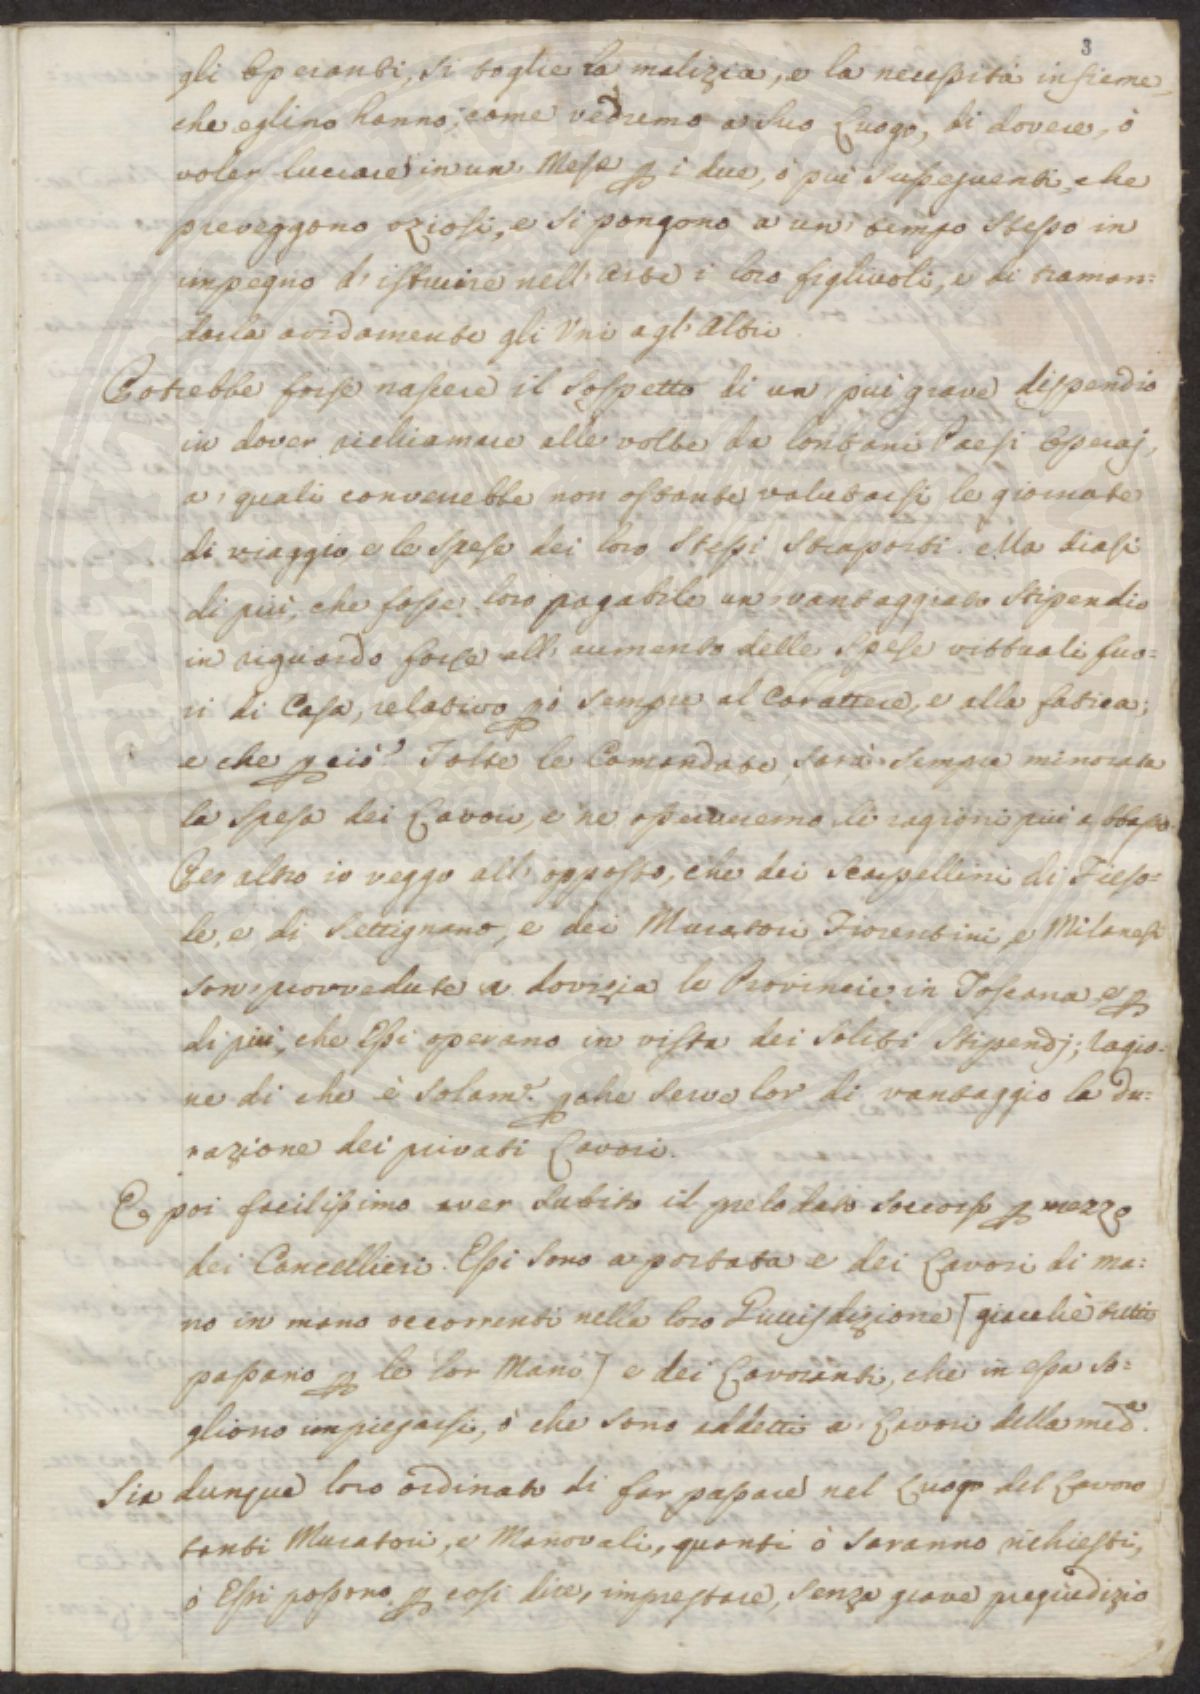 3
gli Operanti, si toglie la malizia, e la necessità insieme,
che eglino hanno, come vedremo a suo Luogo, di dovere, ò
voler lucrare in un Mese p i due, ò più susseguenti, che
preveggono oziosi, e si pongono a un tempo stesso in
impegno d'istruire nell'Arte i loro figlivoli, e di traman=
darla avidamente gli Uni agl'Altri.
Potrebbe forse nascere il sospetto di un più grave dispendio
in dover richiamare alle volte da lontani Paesi Operaj,
a' quali converrebbe non ostante valutarsi le giornate
di viaggio, e le spese dei loro stessi strasporti. Ma diasi
di più, che fosse loro pagabile un vantaggiato stipendio
in riguardo forse all'aumento delle spese vittuali fuo=
ri di Casa, relativo pò sempre al Carattere, e alla fatica;
e che p ciò? Tolte le Comandate, sarà sempre minorata
la spesa dei Lavori, e ne apriremo le ragioni più abbasso.
Per altro io veggo all'opposto, che dei Scarpellini di Fieso=
le, e di Settignano, e dei Muratori Fiorentini, e Milanesi
son provvedute a dovizia le Provincie in Toscana, e p
di più, che Essi operano in vista dei soliti stipendj; ragio=
ne di che è solam.e pche serve lor di vantaggio la du=
razione dei privati Lavori.
E poi facilissimo aver subito il prelodato soccorso p mezzo
dei Cancellieri. Essi sono a portata e dei Lavori di ma=
no in mano occorrenti nella loro Giurisdizione [giacchè tutti
passano p le lor Mani] e dei Lavoranti, che in essa so=
gliono impiegarsi, ò che sono addetti a' Lavori della med.a
Sia dunque loro ordinato di far passare nel Luogo del Lavoro
tanti Muratori, e Manovali, quanti ò saranno richiesti,
ò Essi possono, p così dire, imprestare, senza grave pregiudizio